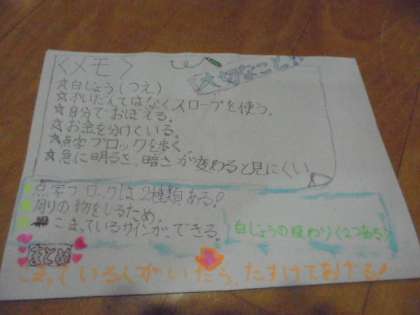 <メモ>
大切なこと
☆白じょう(つえ)
☆かいだんではなくスロープを使う。
☆自分でおぼえる。
☆お金を分けている。
☆点字ブロックを歩く。
☆急に明るさ、暗さが変わると見にくい
点字ブロックは2種類ある!
周りの物をしるため。
こまっているサインができる。
白じょうの変わり<2つある>
まとめ
こまっている人がいたら、たすけてあげる!